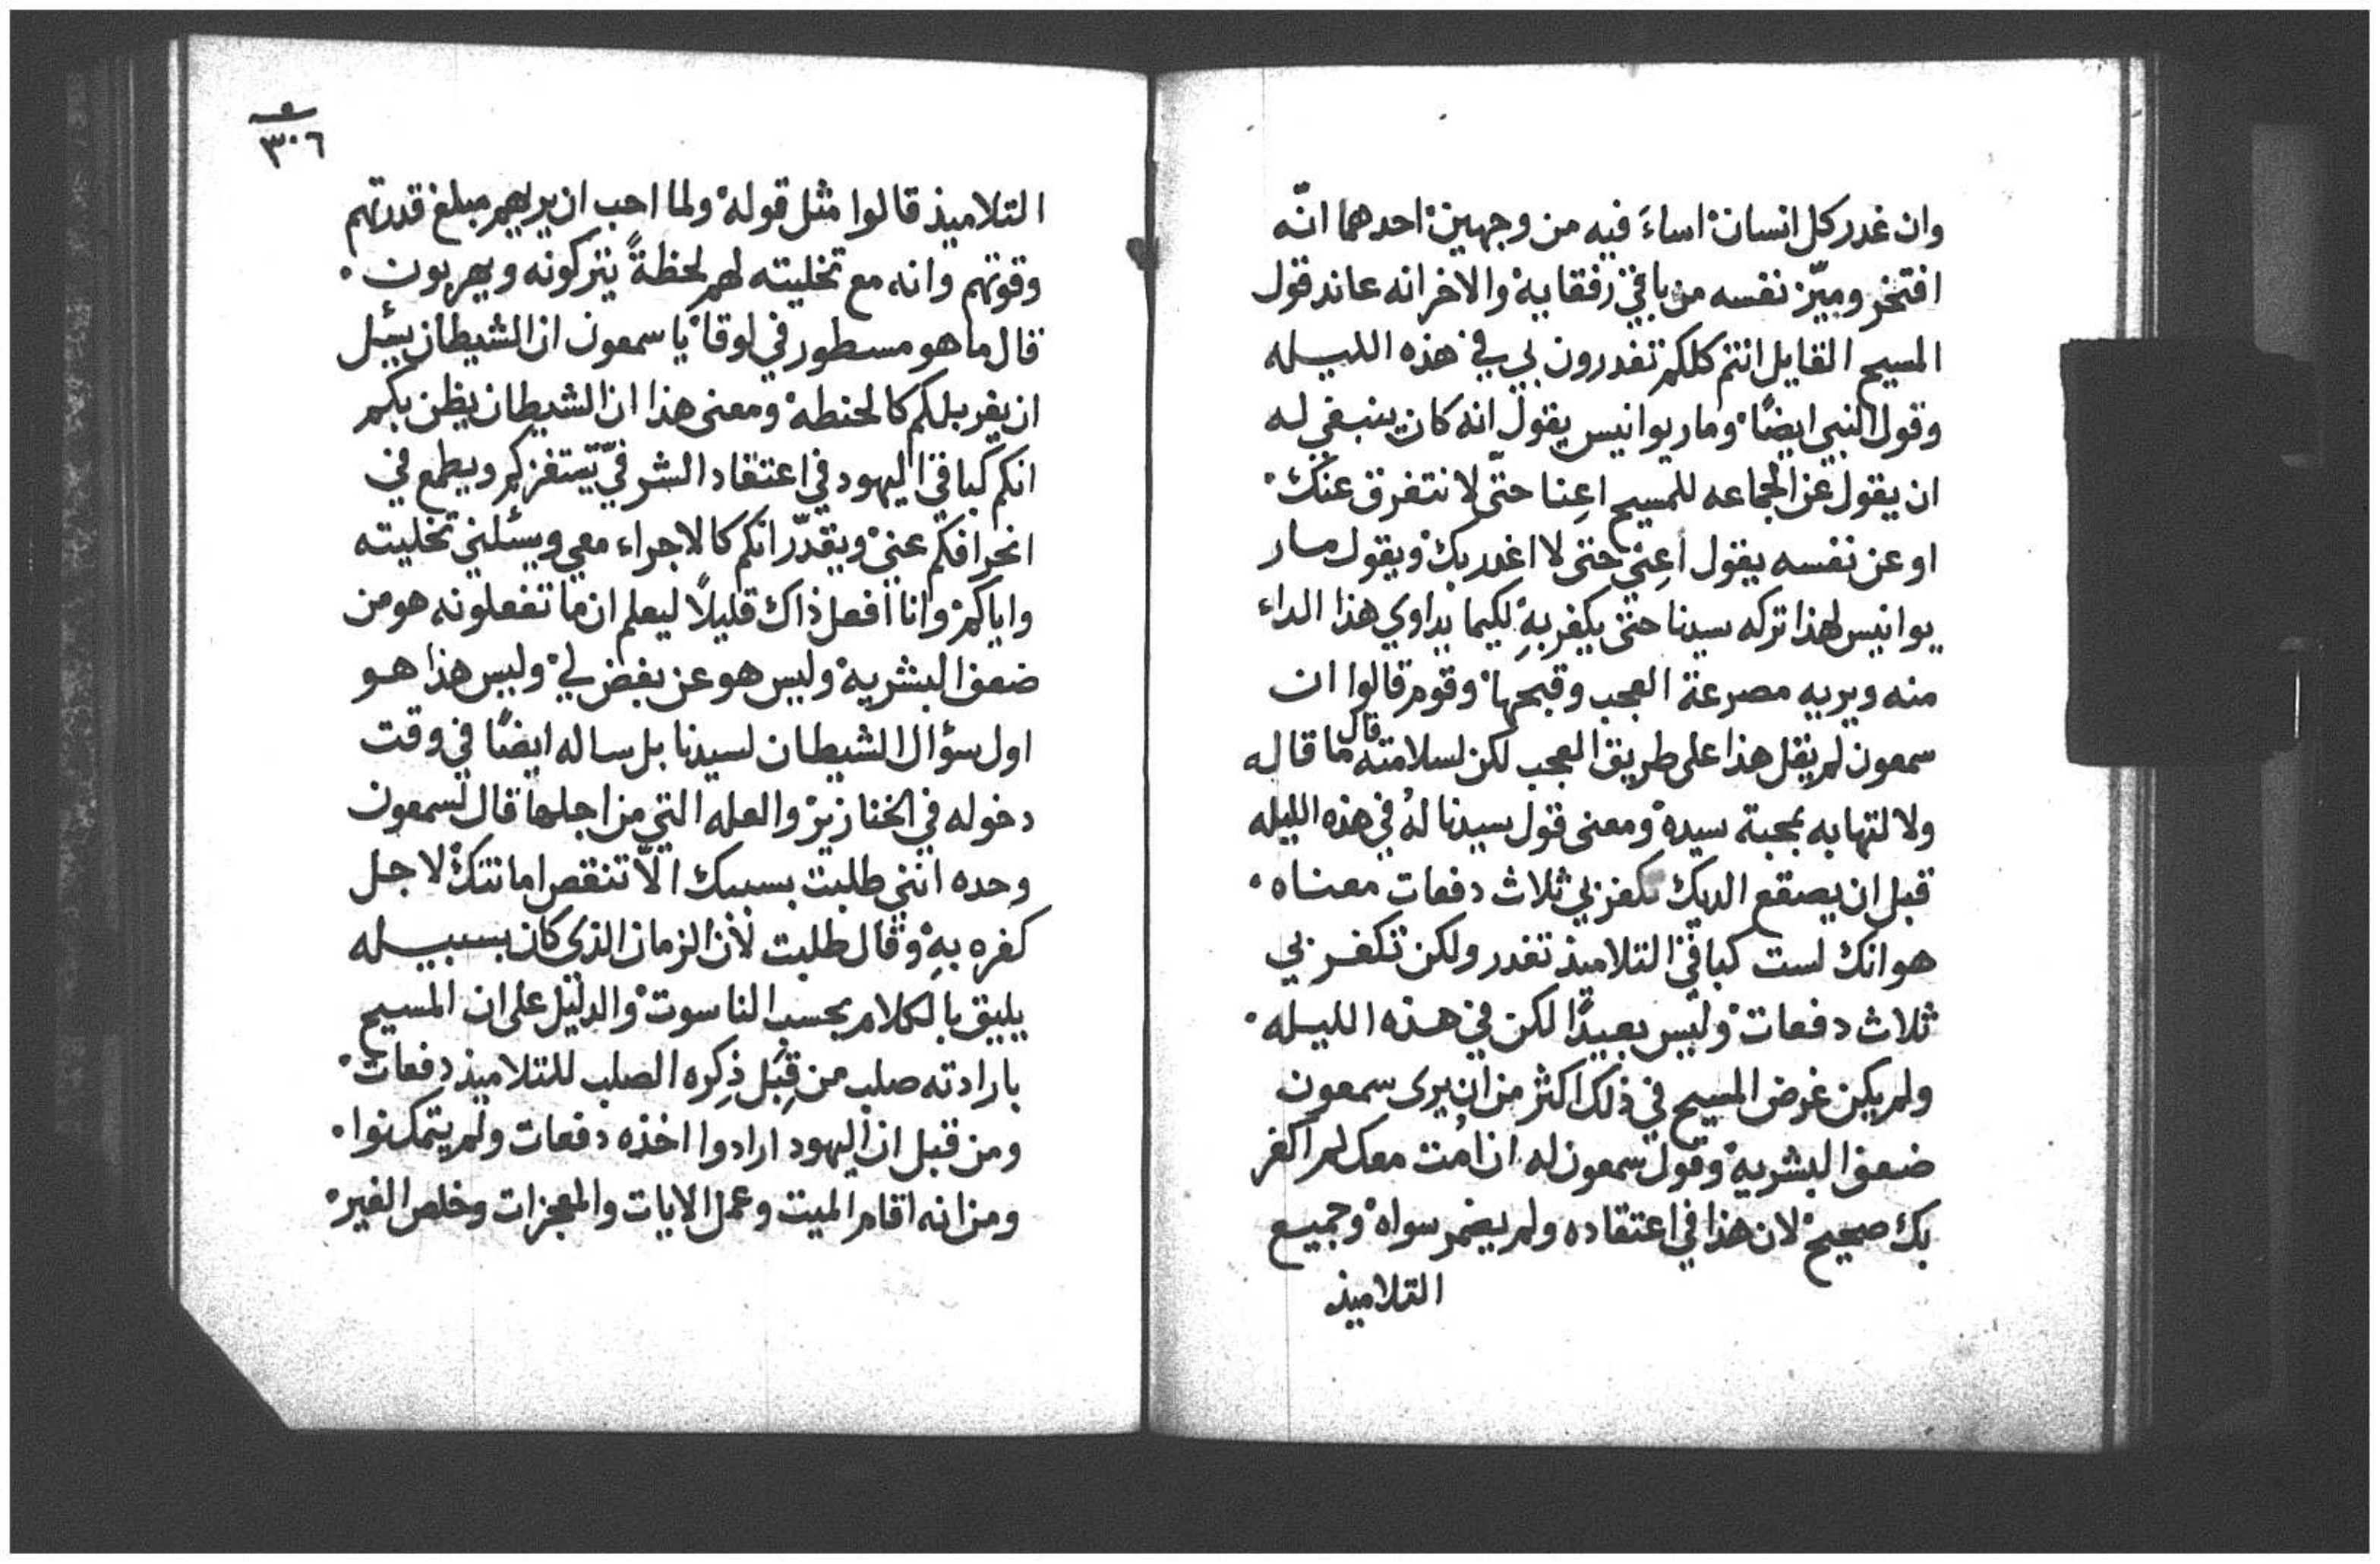 وان غدر كل انسان اساءَ فيه من وجهين احدهما انّه
افتخر وميّز نفسه من باقي رفقايه والاخر انه عاند قول
المسيح القايل انتم كلكم تغدرون بي في هذه الليله
وقول النبي ايضًا وماريوانيس يقول انه كان ينبغي له
ان يقول عن الجماعه للمسيح اعِنا حتّى لا نتفرق عنك
او عن نفسه يقول اعِنّي حتى لا اغدر بك ويقول مار
يوانيس لهذا تركه سيدنا حتى يكفر بهِ لكيما يداوي هذا الداء
منه ويريه مصرعة العجب وقبحها وقوم قالوا ان
سمعون لم يقل هذا على طريق العجب لكن لسلامته قال ما قاله
ولالتهابه بمحبة سيده ومعنى قول سيدنا لهُ في هذه الليله
قبل ان يصقع الديك تكفر بي ثلاث دفعات معناه
هو انك لست كباقي التلاميذ تغدر ولكن تكفر بي
ثلاث دفعات وليس بعيدًا لكن في هذه الليله
ولم يكن غرض المسيح في ذلك اكثر من ان يرى سمعون
ضعف البشريه وقول سمعون له ان اُمت معك لم اكفر
بك صحيح لان هذا في اعتقاده ولم يضمر سواه وجميع
التلاميذ
٣٠٦
التلاميذ قالوا مثل قوله ولما احب ان يريهم مبلغ قدرتهم
وقوتهم وانه مع تخليته لهم لحظةً يتركونه ويهربون
قال ما هو مسطور في لوقا يا سمعون ان الشيطان يسئل
ان يغربلكم كالحنطه ومعنى هذا ان الشيطان يظن بكم
انكم كباقي اليهود في اعتقاد الشر فيّ يستفزكم ويطمع في
انحرافكم عني ويقدّر انكم كالاجراء معي ويسئلني تخليته
واياكم وانا افعل ذاك قليلًا ليعلم ان ما تفعلونه هو من
ضعف البشريه وليس هو عن بغض لي وليس هذا هو
اول سؤال الشيطان لسيدنا بل ساله ايضًا في وقت
دخوله في الخنازير والعله التي من اجلها قال لسمعون
وحده انني طلبت بسببك الّا تنقص امانتك لاجل
كفره بهِ وقال طلبت لأن الزمان الذي كان بسبيله
يليق بالكلام بحسب الناسوت والدليل على ان المسيح
بارادته صلب من قِبَل ذِكره الصلب للتلاميذ دفعات
ومن قبل ان اليهود ارادوا اخذه دفعات ولم يتمكنوا
ومن انه اقام الميت وعمل الايات والمعجزات وخلص الغير